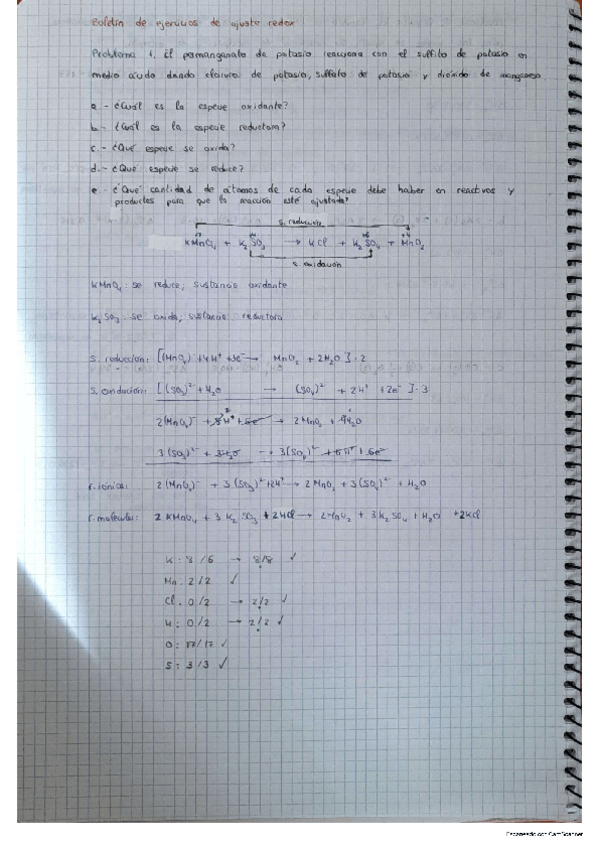 Boletín de ejercicios de ajuste redox
Problema 1. El permanganato de potasio reacciona con el sulfito de potasio en
medio ácido dando cloruro de potasio, sulfato de potasio y dióxido de manganeso.
a.- ¿Cuál es la especie oxidante?
b.- ¿Cuál es la especie reductora?
c.- ¿Qué especie se oxida?
d.- ¿Qué especie se reduce?
e.- ¿Qué cantidad de átomos de cada especie debe haber en reactivos y
productos para que la reacción esté ajustada?
s. reducción
KMnO₄ + K₂SO₃ → KCl + K₂SO₄ + MnO₂
s. oxidación
KMnO₄: se reduce, sustancia oxidante
K₂SO₃: se oxida, sustancia reductora
s. reducción: [(MnO₄)⁻ + 4H⁺ + 3e⁻ → MnO₂ + 2H₂O] · 2
s. oxidación: [(SO₃)²⁻ + H₂O → (SO₄)²⁻ + 2H⁺ + 2e⁻] · 3
2(MnO₄)⁻ + 8H⁺ + 6e⁻ → 2MnO₂ + 4H₂O
3(SO₃)²⁻ + 3H₂O → 3(SO₄)²⁻ + 6H⁺ + 6e⁻
r. iónica: 2(MnO₄)⁻ + 3(SO₃)²⁻ + 2H⁺ → 2MnO₂ + 3(SO₄)²⁻ + H₂O
r. molecular: 2KMnO₄ + 3K₂SO₃ + 2HCl → 2MnO₂ + 3K₂SO₄ + H₂O + 2KCl
K: 8/6 → 8/8 ✓
Mn: 2/2 ✓
Cl: 0/2 → 2/2 ✓
H: 0/2 → 2/2 ✓
O: 17/17 ✓
S: 3/3 ✓
Escaneado con CamScanner